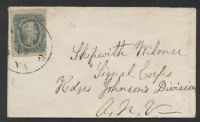 Skipwith Wilmer
Signal Corps
Hedqrs Johnson's Division
A. N. V.
VA